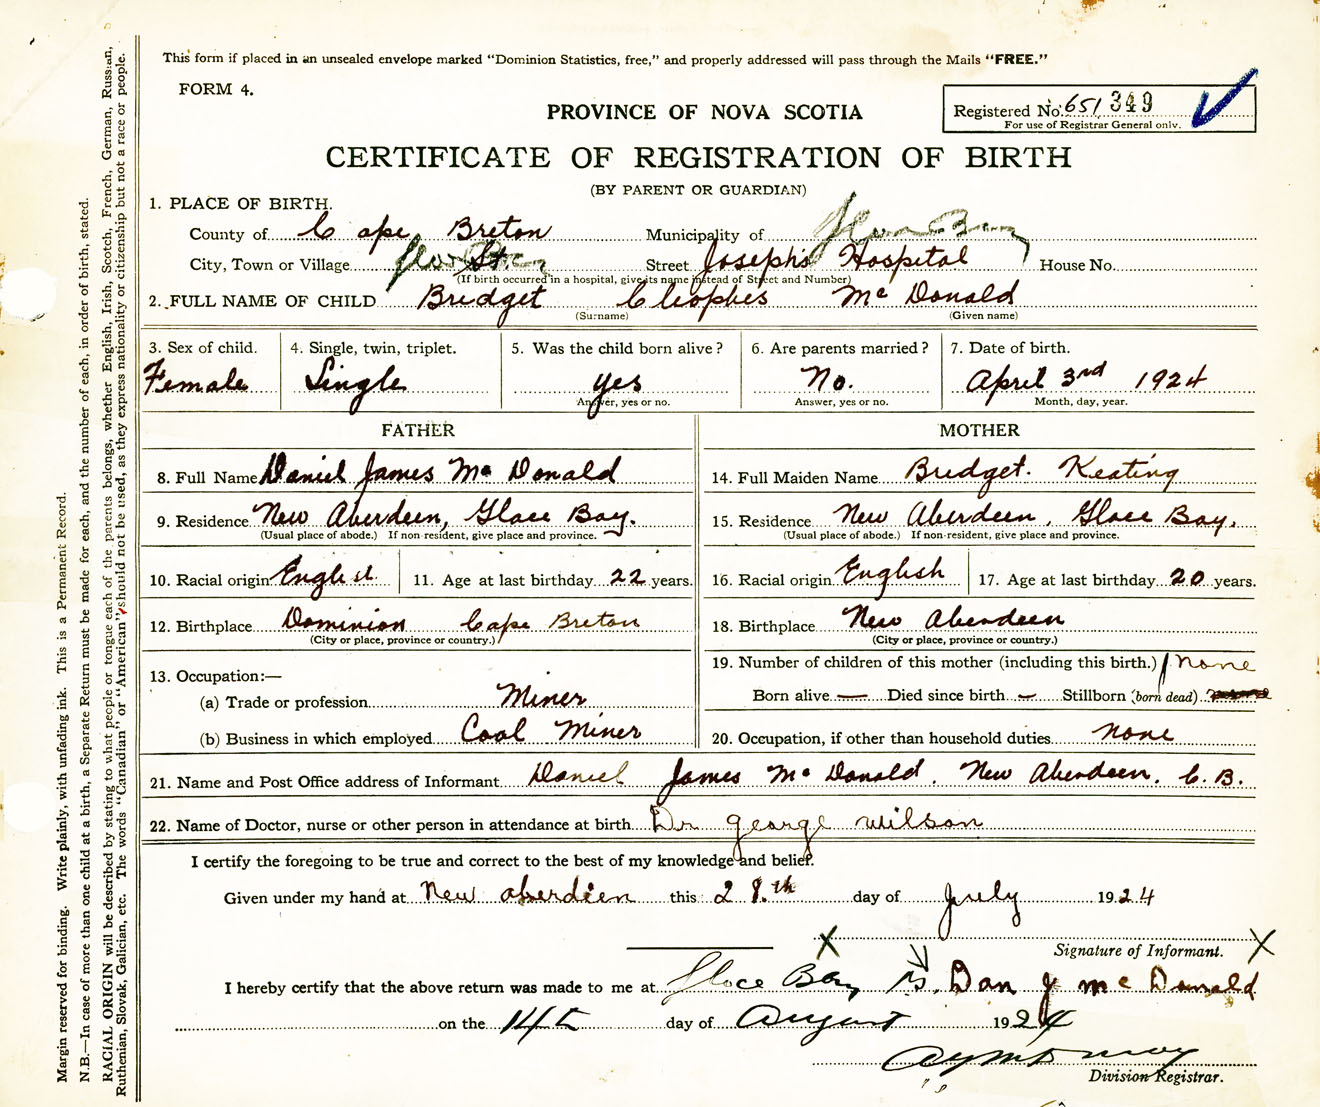 This form if placed in an unsealed envelope marked "Dominion Statistics, free," and properly addressed will pass through the Mails "FREE."
FORM 4.
PROVINCE OF NOVA SCOTIA
Registered No. 651 349
For use of Registrar General only.
CERTIFICATE OF REGISTRATION OF BIRTH
(BY PARENT OR GUARDIAN)
1. PLACE OF BIRTH.
County of Cape Breton Municipality of Glace Bay
City, Town or Village Glace Bay Street St. Joseph's Hospital House No.
(If birth occurred in a hospital, give its name instead of Street and Number)
2. FULL NAME OF CHILD Bridget Cleophes Mc Donald
(Surname) (Given name)
3. Sex of child. 4. Single, twin, triplet. 5. Was the child born alive? 6. Are parents married? 7. Date of birth.
Female Single yes No. April 3rd 1924
Answer, yes or no. Answer, yes or no. Month, day, year.
FATHER MOTHER
8. Full Name Daniel James Mc Donald 14. Full Maiden Name Bridget. Keating
9. Residence New Aberdeen, Glace Bay. 15. Residence New Aberdeen, Glace Bay.
(Usual place of abode.) If non-resident, give place and province. (Usual place of abode.) If non-resident, give place and province.
10. Racial origin English 11. Age at last birthday 22 years. 16. Racial origin English 17. Age at last birthday 20 years.
12. Birthplace Dominion Cape Breton 18. Birthplace New Aberdeen
(City or place, province or country.) (City or place, province or country.)
13. Occupation:— 19. Number of children of this mother (including this birth.) 1 none
(a) Trade or profession Miner Born alive — Died since birth — Stillborn (born dead)
(b) Business in which employed Coal Miner 20. Occupation, if other than household duties none
21. Name and Post Office address of Informant Daniel James Mc Donald. New Aberdeen. C. B.
22. Name of Doctor, nurse or other person in attendance at birth Dr george wilson
I certify the foregoing to be true and correct to the best of my knowledge and belief.
Given under my hand at New aberdeen this 28.th day of July 1924
X Signature of Informant. X
I hereby certify that the above return was made to me at Glace Bay Dan J mc Donald
on the 14th day of August 1924
Division Registrar.
Margin reserved for binding. Write plainly, with unfading ink. This is a Permanent Record.
N.B.—In case of more than one child at a birth, a Separate Return must be made for each, and the number of each, in order of birth, stated.
RACIAL ORIGIN will be described by stating to what people or tongue each of the parents belongs, whether English, Irish, Scotch, French, German, Russian,
Ruthenian, Slovak, Galician, etc. The words "Canadian" or "American" should not be used, as they express nationality or citizenship but not a race or people.